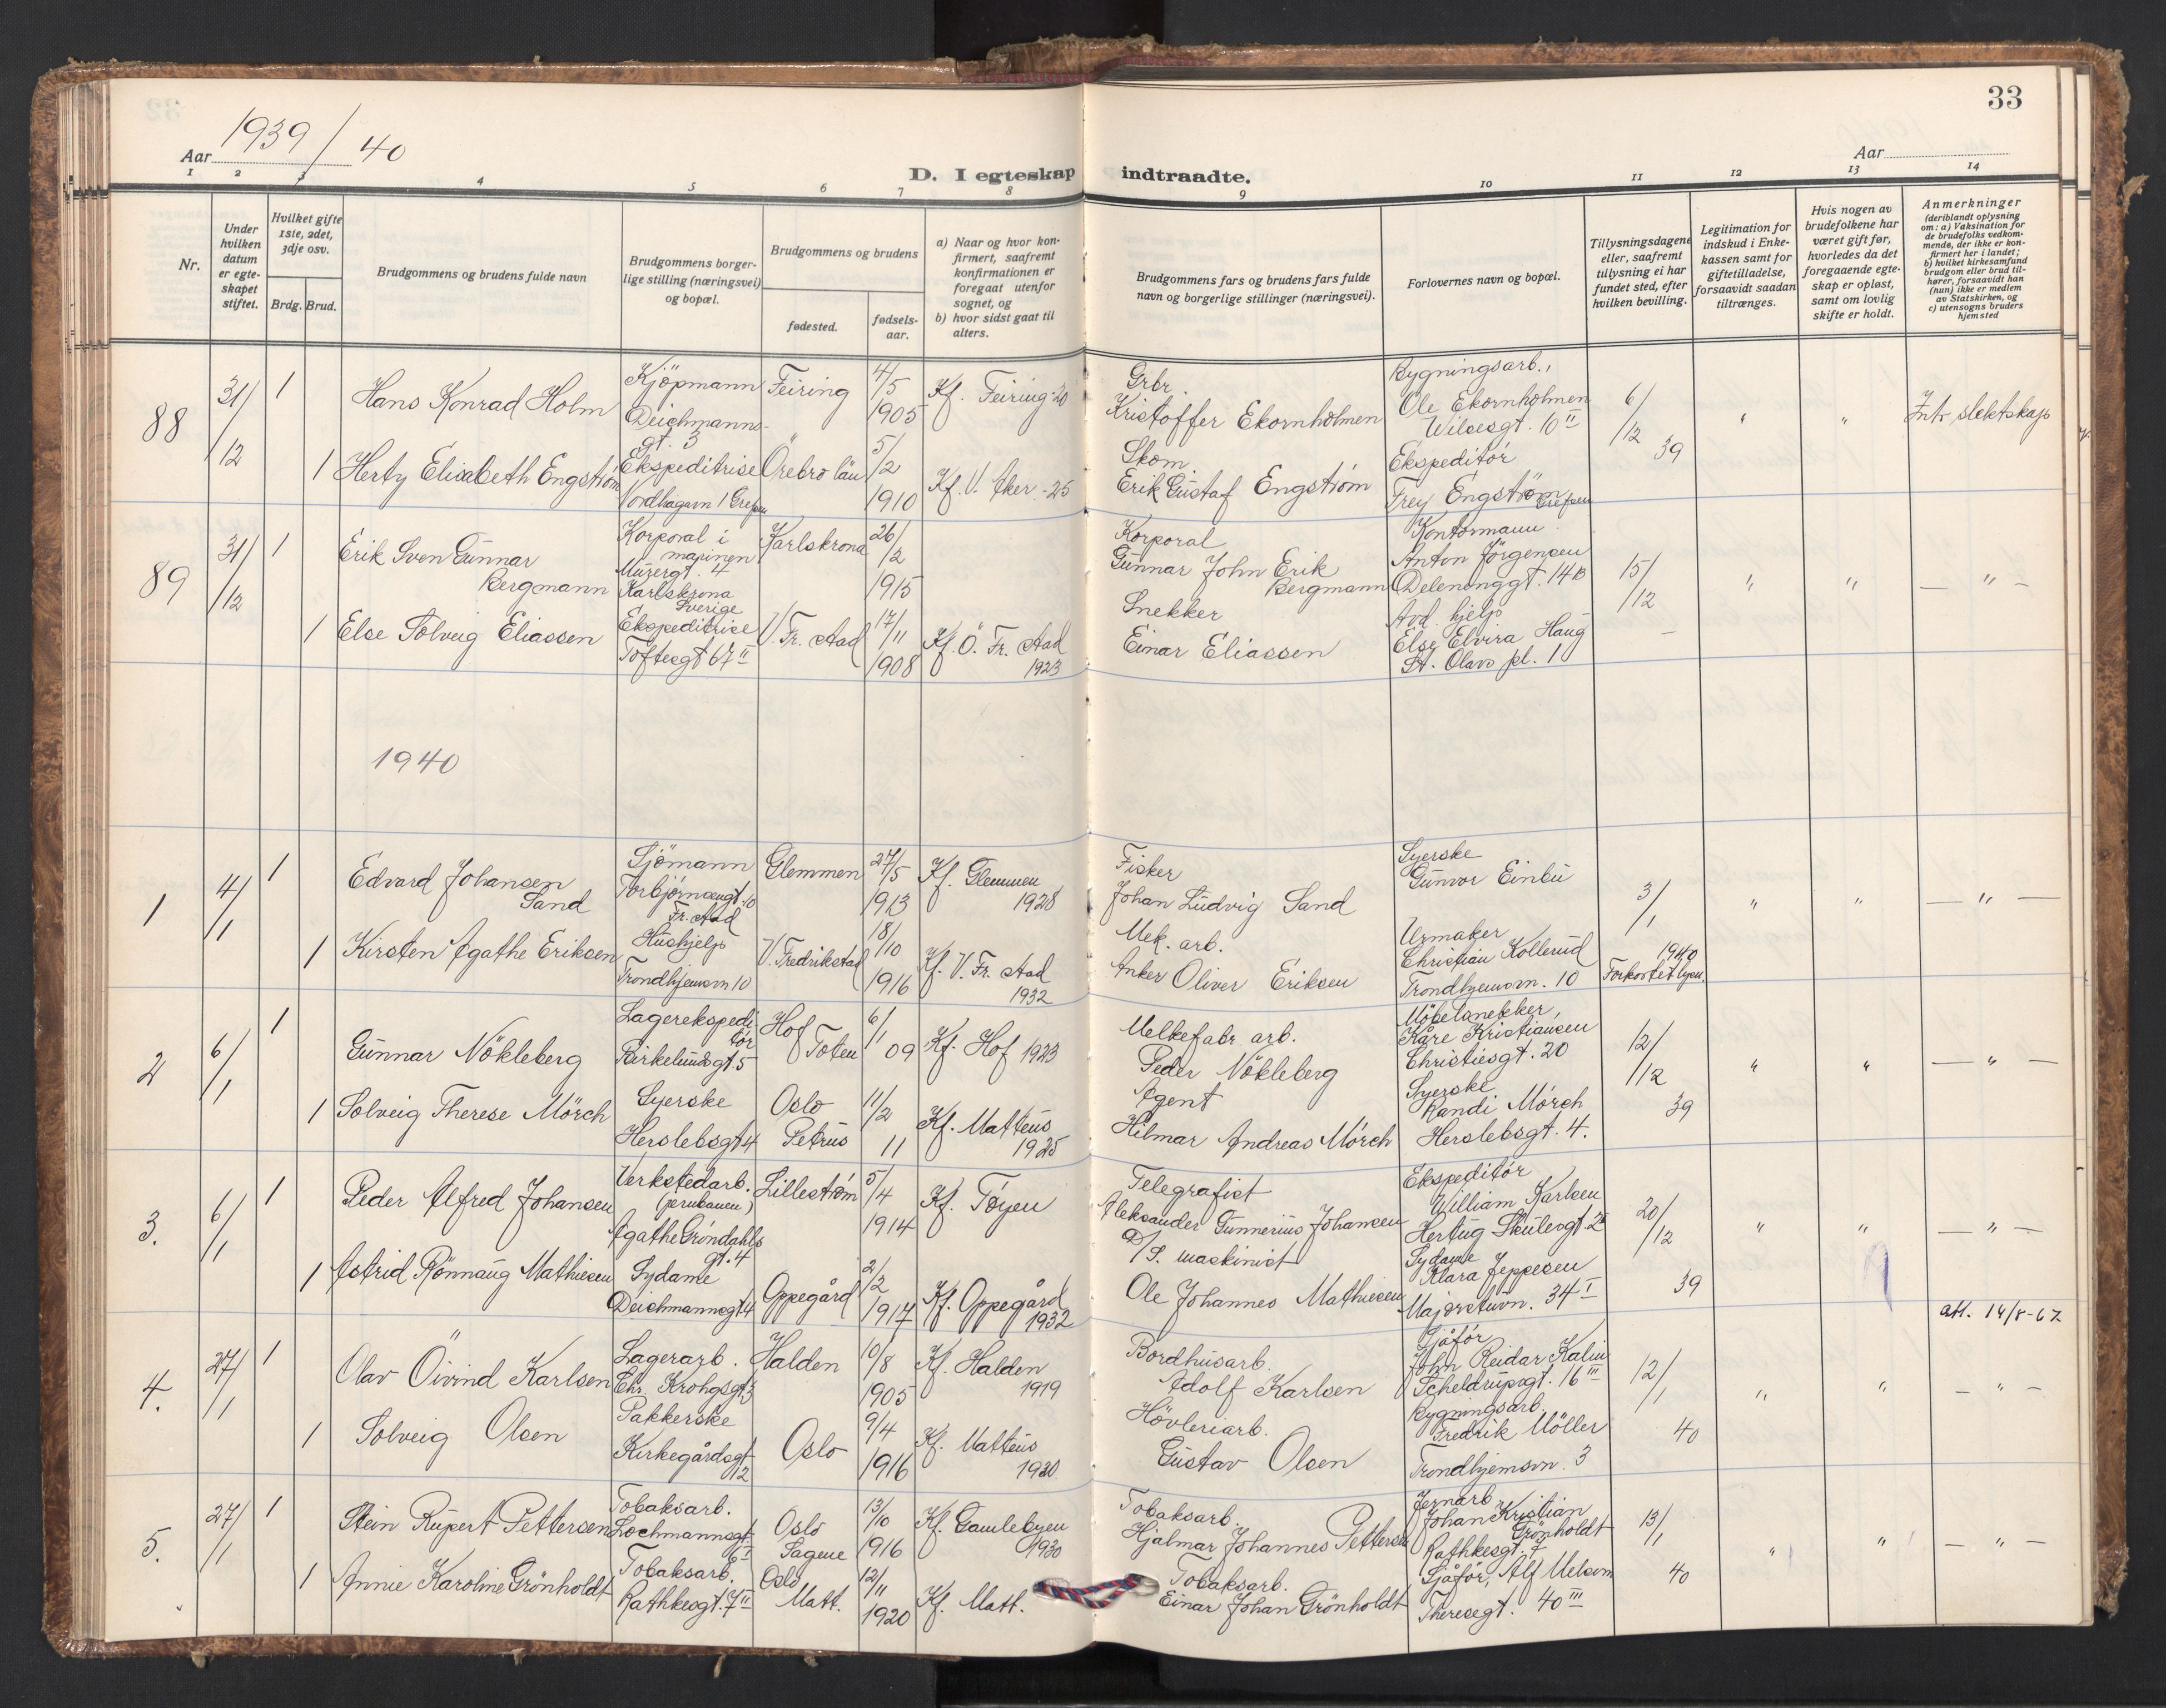 33
Aar 1939/40
Aar
D. I egteskap indtraadte.
1 2 3 4 5 6 7 8 9 10 11 12 13 14
Nr.
Under hvilken datum er egteskapet stiftet.
Hvilket gifte 1ste, 2det, 3dje osv.
Brdg. Brud.
Brudgommens og brudens fulde navn
Brudgommens borgerlige stilling (næringsvei) og bopæl.
Brudgommens og brudens
fødested.
fødselsaar.
a) Naar og hvor konfirmert, saafremt konfirmationen er foregaat utenfor sognet, og
b) hvor sidst gaat til alters.
Brudgommens fars og brudens fars fulde navn og borgerlige stillinger (næringsvei).
Forlovernes navn og bopæl.
Tillysningsdagene eller, saafremt tillysning ei har fundet sted, efter hvilken bevilling.
Legitimation for indskud i Enkekassen samt for giftetilladelse, forsaavidt saadan tiltrænges.
Hvis nogen av brudefolkene har været gift før, hvorledes da det foregaaende egteskap er opløst, samt om lovlig skifte er holdt.
Anmerkninger
(deriblandt oplysning om: a) Vaksination for de brudefolks vedkommende, der ikke er konfirmert her i landet; b) hvilket kirkesamfund brudgom eller brud tilhører, forsaavidt han (hun) ikke er medlem av Statskirken, og c) utensogns bruders hjemsted
88
31/12
1
Hans Konrad Holm
Kjöpmann
Deichmannsgt. 3
Feiring
4/5
1905
Kf. Feiring -20
Grbr.
Kristoffer Ekornholmen
Bygningsarb.,
Ole Ekornholmen
Wilsesgt. 6 II
6/12 39
"
"
Intr slektskap
1
Herty Elisabeth Engström
Ekspeditrise
Nordhagavn 1 Grefsen
Örebro län
5/2
1910
Kf. V. Aker -25
Skom.
Erik Gustaf Engström
Ekspeditör
Frey Engström
Grefsen
89
31/12
1
Erik Sven Gunnar
Bergmann
Korporal i
marinen
4
Karlskrona
Sverige
Karlskrona
26/2
1915
Korporal
Gunnar John Erik
Bergmann
Kontormann
Anton Jörgensen
Delenenggt. 14B
15/12
"
"
— " —
1
Else Solveig Eliassen
Ekspeditrise
Toftesgt 67 II
V. Fr. stad
17/11
1908
Kf. Ö. Fr. stad
1923
Snekker
Einar Eliassen
Avd. hjelp
Else Elvira Haug
St. Olavs pl. 1
—
1940
1
4/1
1
Edvard Johansen
Sand
Sjömann
Torbjörnsengt. 10
Fr. stad
Glemmen
27/5
1913
Kf. Glemmen
1928
Fisker
Johan Ludvig Sand
Syerske
Gunvor Einbu
3/1
1940
Forkortet lysn.
"
"
— " —
1
Kirsten Agathe Eriksen
Hushjelp
Trondhjemsvn 10
V. Fredrikstad
18/10
1916
Kf. V. Fr. stad
1932
Mek. arb.
Anker Oliver Eriksen
Urmaker
Christian Kollerud
Trondhjemsvn. 10
2
6/1
1
Gunnar Nökleberg
Lagerekspeditör
Birkelundsgt. 5
Hof
Toten
6/1
09
Kf. Hof 1923
Melkefabr. arb.
Peder Nökleberg
Möbelsnekker,
Kåre Kristiansen
Christiesgt. 20
12/12
39
"
"
— " —
1
Solveig Therese Mörch
Syerske
Herslebsgt 4
Oslo
Petrus
11/2
11
Kf. Matteus
1925
Agent
Hilmar Andreas Mörch
Syerske
Randi Mörch
Herslebsgt. 4.
3.
6/1
1
Peder Alfred Johansen
Verkstedarb.
(jernbanen)
Agathe Gröndahls
gt. 4
Lilleström
5/4
1914
Kf. Töyen
Telegrafist
Aleksander Gunnerius Johansen
Ekspeditör
William Karlsen
Hertug Skulesgt. 2
20/12
39
"
"
— " —
1
Astrid Rönnaug Mathiesen
Sydame
Deichmannsgt 4
Oppegård
2/2
1917
Kf. Oppegård
1932
D/S. maskinist
Ole Johannes Mathiesen
Sydame
Klara Jeppesen
Majorstuvn. 34 I
att. 14/8-62
4.
27/1
1
Olav Öivind Karlsen
Lagerarb.
Chr. Krohgsgt 3
Halden
10/8
1905
Kf. Halden
1919
Bordhusarb.
Adolf Karlsen
Sjåför
John Reidar Kalin
Scheldrupsgt. 16 III
12/1
40
"
"
— " —
1
Solveig Olsen
Pakkerske
Kirkegårdsgt
12
Oslo
9/4
1916
Kf. Matteus
1930
Hövleriarb.
Gustav Olsen
Bygningsarb.
Fredrik Möller
Trondhjemsvn. 3
5.
27/1
1
Stein Rupert Pettersen
Tobaksarb.
Lochmannsgt
6 I
Oslo
Sagene
13/10
1916
Kf. Gamlebyen
1930
Tobaksarb.
Hjalmar Johannes Pettersen
Jernarb
Johan Kristian
Grönholdt
Rathkesgt. 7
13/1
40
"
"
— " —
1
Annie Karoline Grönholdt
Tobaksarb.
Rathkesgt. 7 II
Oslo
Matt.
12/11
1920
Kf. Matt.
Tobaksarb.
Einar Johan Grönholdt
Sjåför, Alf Melsom
Theresegt. 40 III